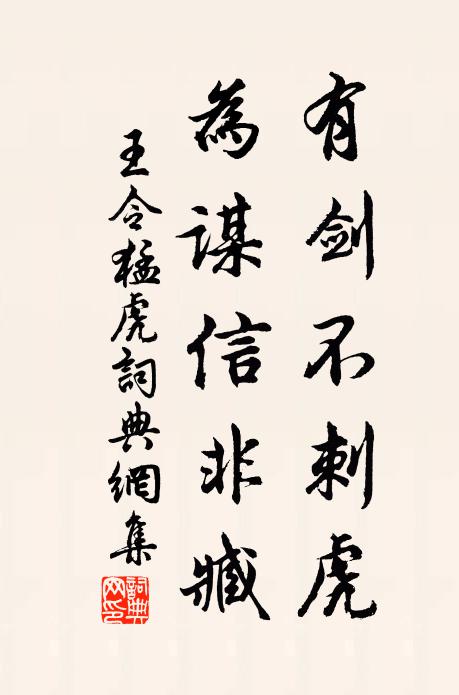 有剑不刺虎
為謀信非臧
王令猛虎詞典網集
詞典网印